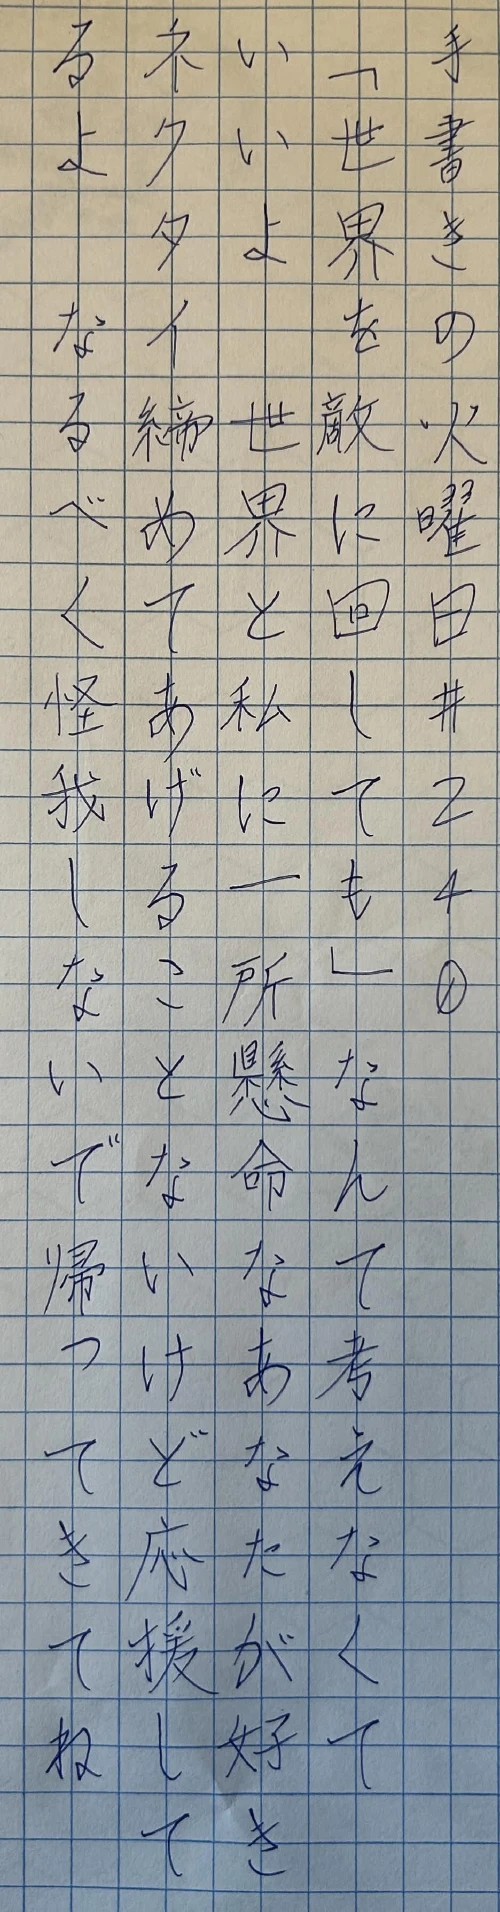 手書きの火曜日#240
「世界を敵に回しても」なんて考えなくて
いいよ 世界と私に一所懸命なあなたが好き
ネクタイ締めてあげることないけど応援して
るよ なるべく怪我しないで帰ってきてね